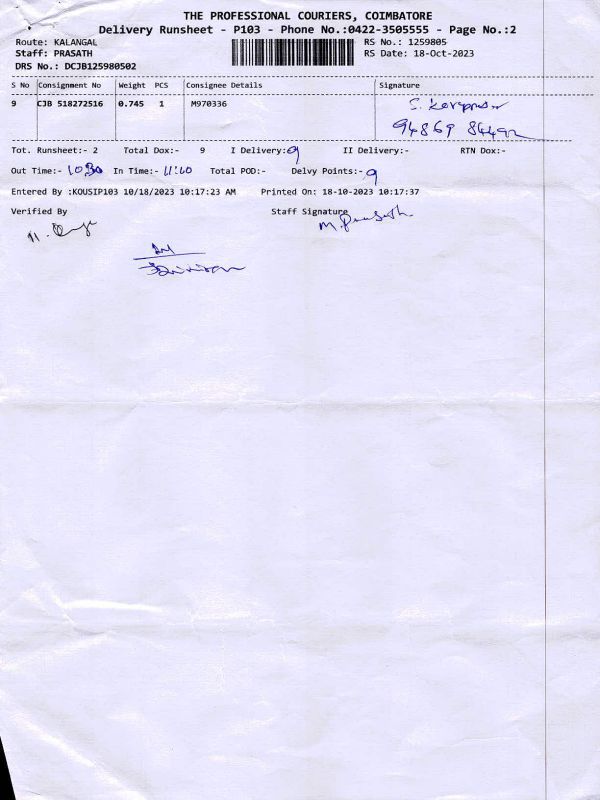 THE PROFESSIONAL COURIERS, COIMBATORE
Delivery Runsheet - P103 - Phone No.:0422-3505555 - Page No.:2
Route: KALANGAL RS No.: 1259805
Staff: PRASATH RS Date: 18-Oct-2023
DRS No.: DCJB125980502
S No Consignment No Weight PCS Consignee Details Signature
9 CJB 518272516 0.745 1 M970336
Tot. Runsheet:- 2 Total Dox:- 9 I Delivery:- 9 II Delivery:- RTN Dox:-
Out Time:- 10:30 In Time:- 11:10 Total POD:- Delvy Points:- 9
Entered By :KOUSIP103 10/18/2023 10:17:23 AM Printed On: 18-10-2023 10:17:37
Verified By Staff Signature
M. Prasath